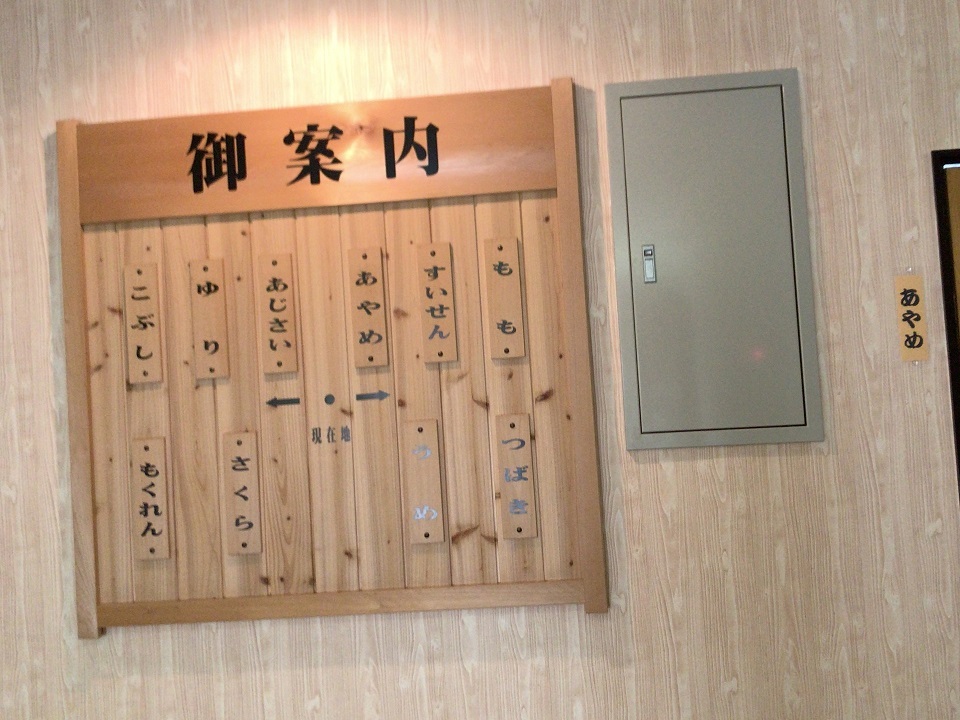 御案内
こぶし
ゆり
あじさい
あやめ
すいせん
もも
現在地
もくれん
さくら
うめ
つばき
あやめ